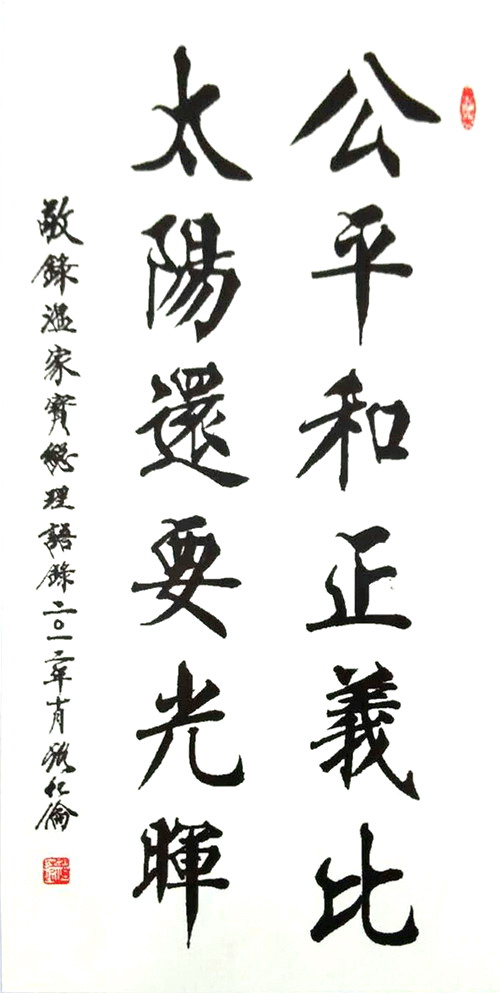 公平和正義比
太陽還要光暉
敬錄温家寶總理語錄二〇一二年十月仁倫